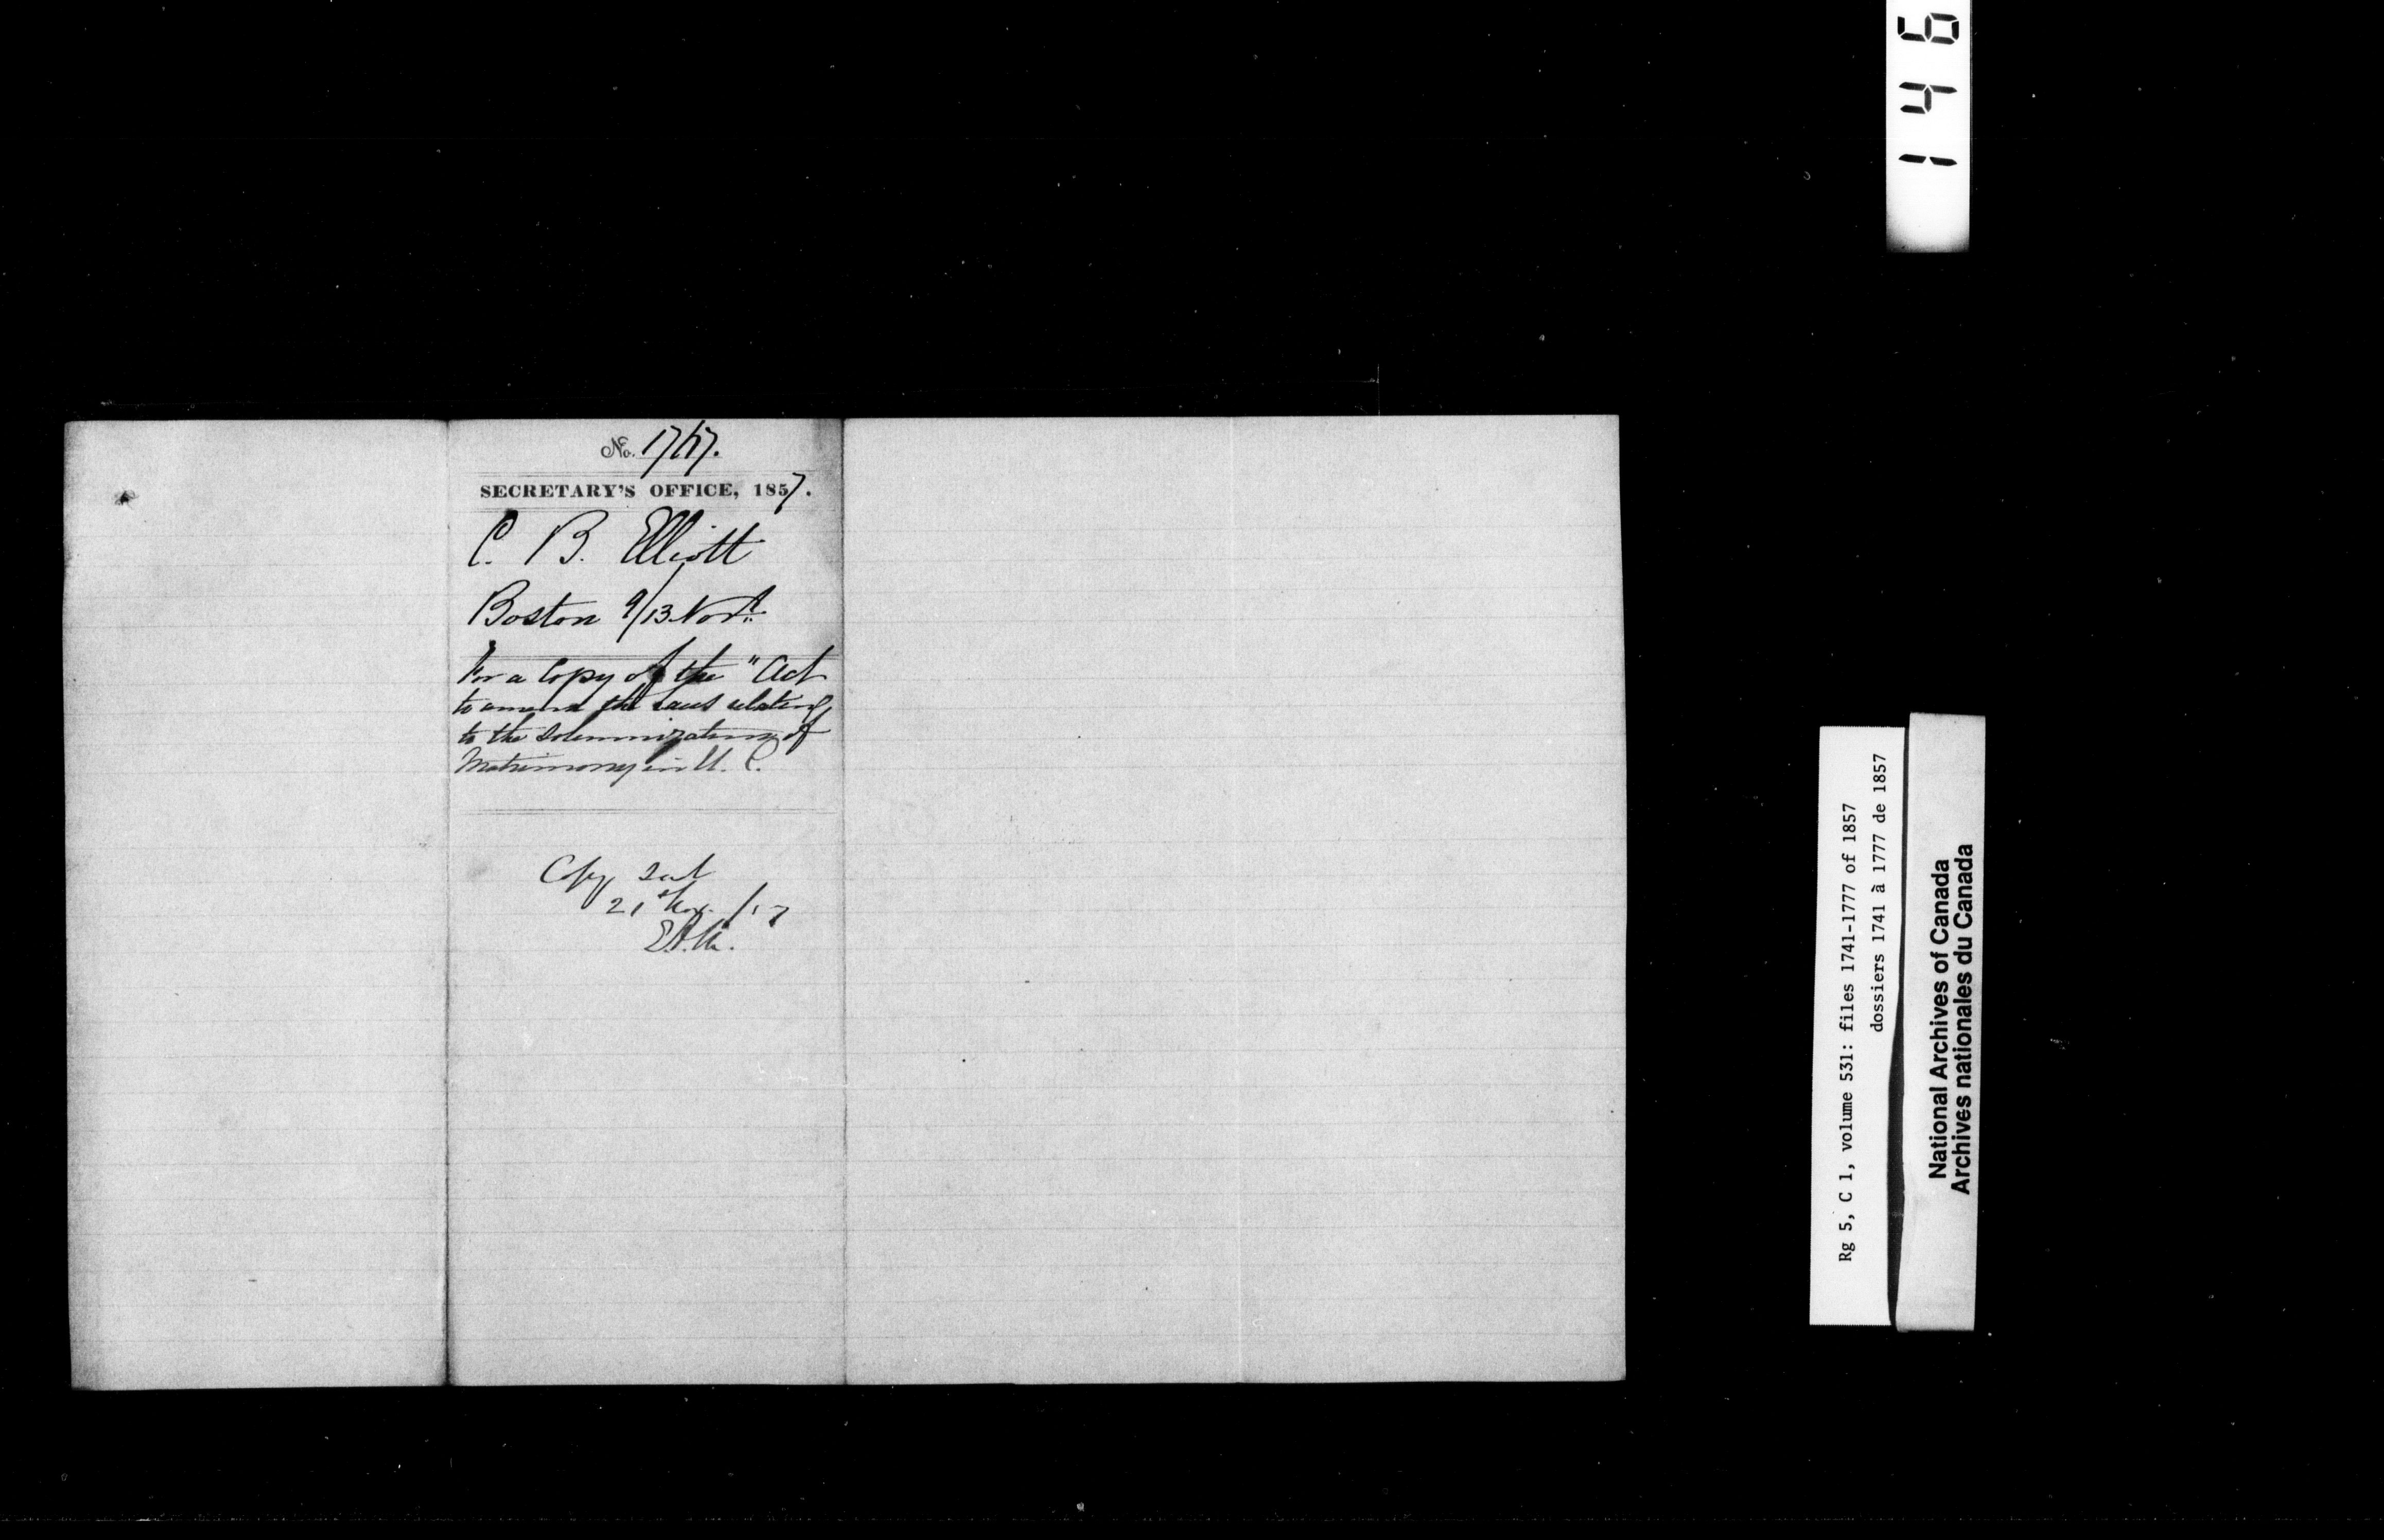 No. 1757.
SECRETARY'S OFFICE, 1857.
C. B. Elliott
Boston 9/13 Novr.
For a Copy of the "Act
to amend the Laws relating
to the Solemnization of
Matrimony in U. C.
Copy sent
21st Nov. /57
146
Rg 5, C 1, volume 531: files 1741-1777 of 1857
dossiers 1741 à 1777 de 1857
National Archives of Canada
Archives nationales du Canada